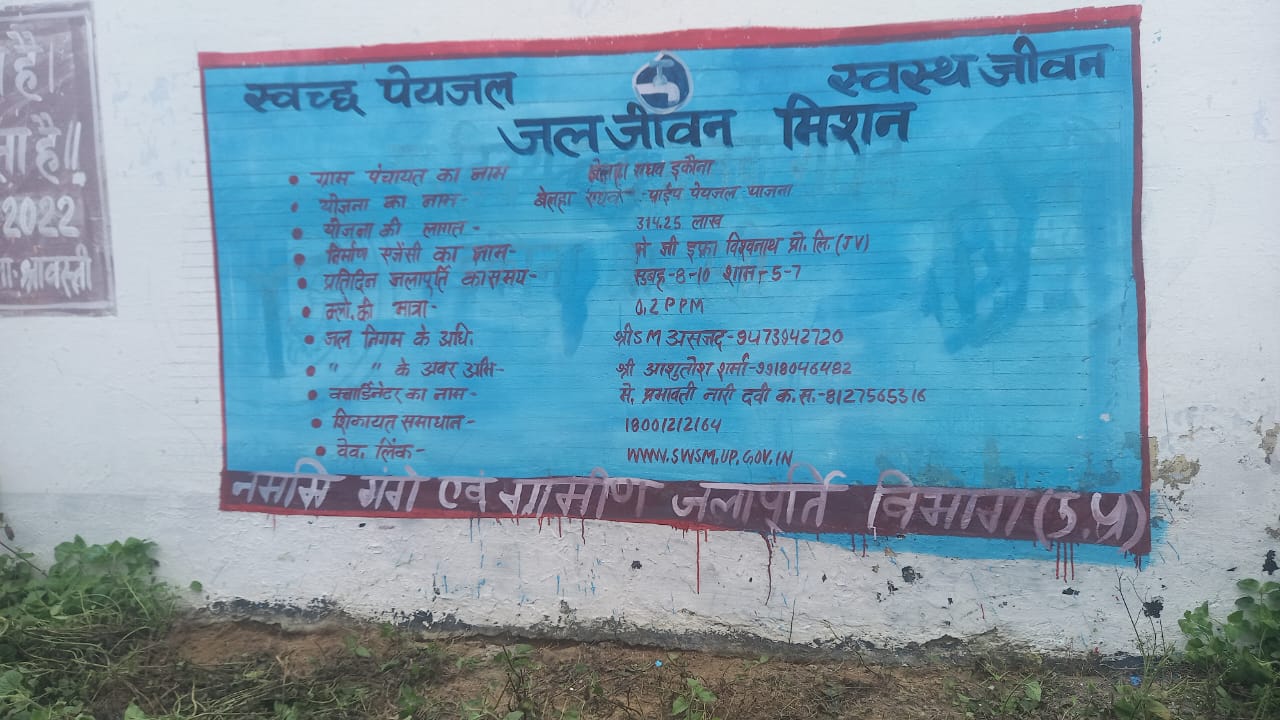 है।
ता है॥
2022
श्रावस्ती
स्वच्छ पेयजल
स्वस्थ जीवन
जल जीवन मिशन
• ग्राम पंचायत का नाम बेलहा राघव इकौना
• योजना का नाम- बेलहा राघव पाईप पेयजल योजना
• योजना की लागत- 314.25 लाख
• निर्माण एजेंसी का नाम- मे जी इफ्रा विश्वनाथ प्रो. लि. (JV)
• प्रतिदिन जलापूर्ति का समय- सुबह-8-10 शाम-5-7
• क्लो. की मात्रा- 0.2 PPM
• जल निगम के अधि. श्री SM असजद-9473942720
• " " के अवर अभि- श्री आशुतोश शर्मा-9918046482
• क्वार्डिनेटर का नाम- मे. प्रभावती नारी दवी क.स.-8127565316
• शिकायत समाधान- 18001212164
• वेव. लिंक- WWW.SWSM.UP.GOV.IN
नमामि गंगे एवं ग्रामीण जलापूर्ति विभाग (उ.प्र)